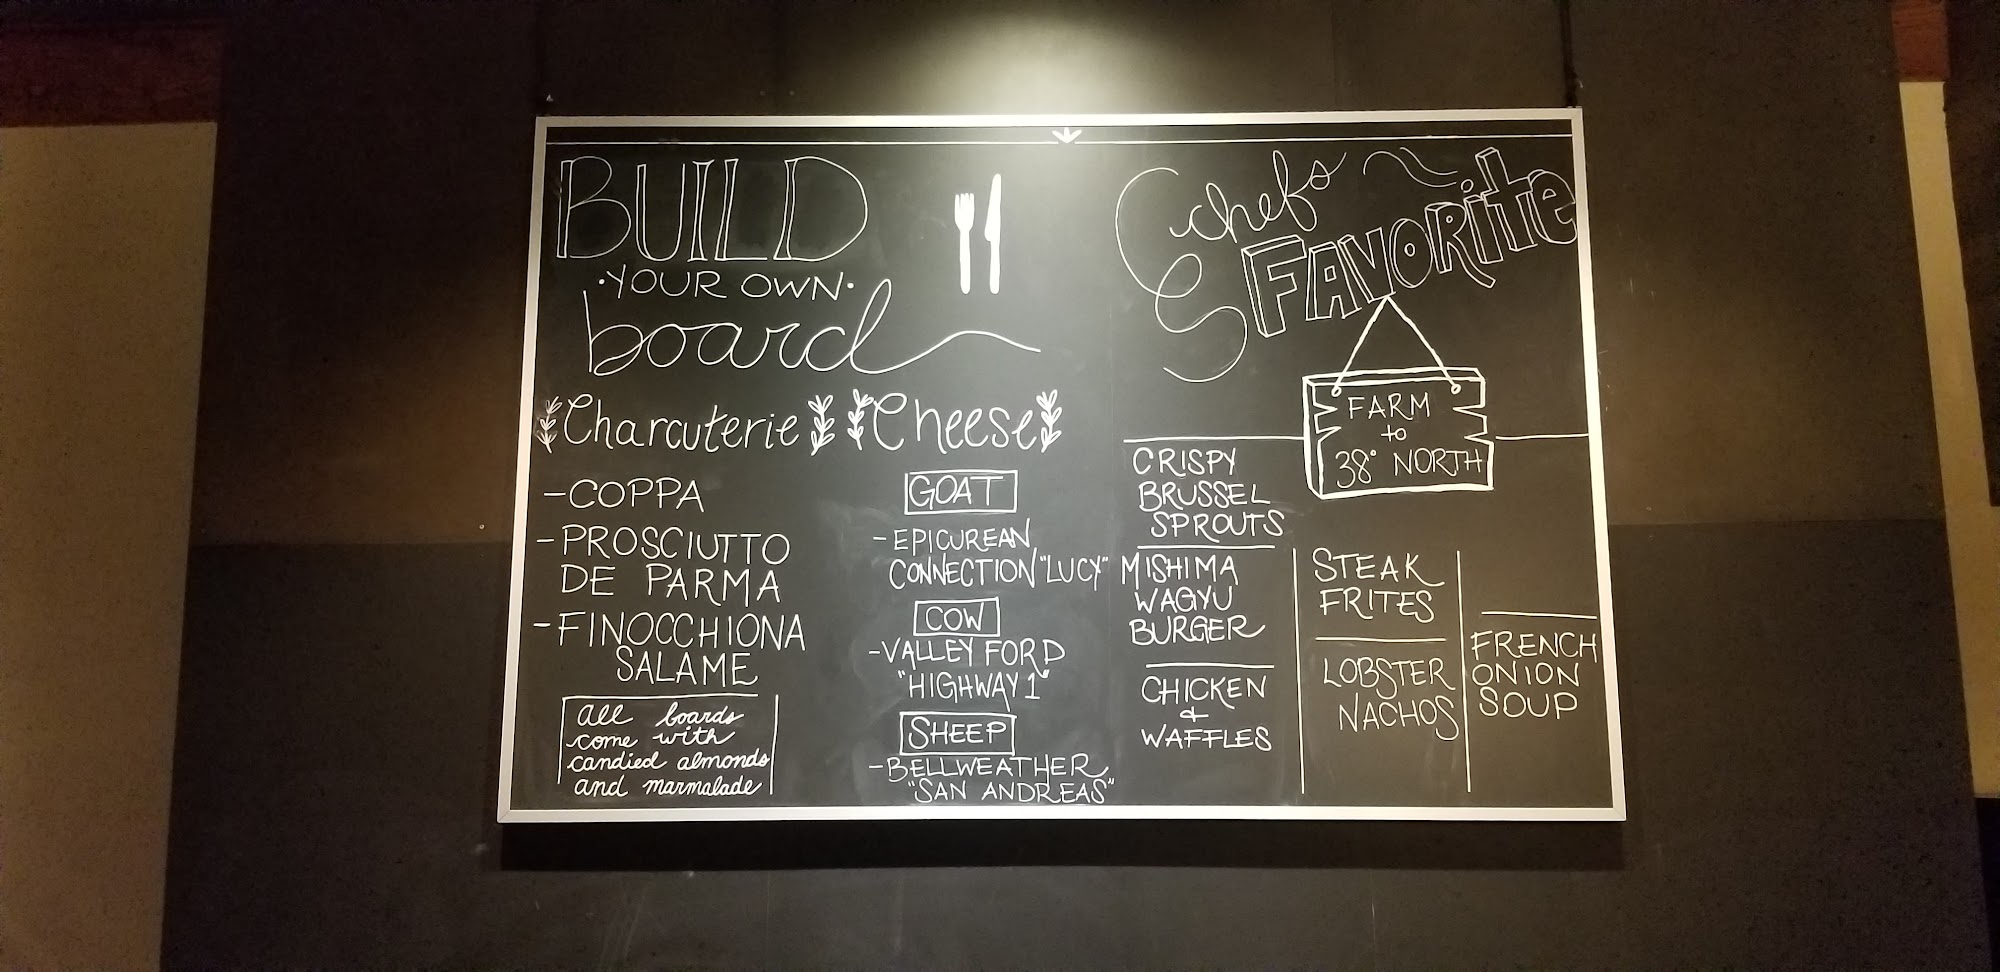 BUILD
·YOUR OWN·
board
Charcuterie
-COPPA
-PROSCIUTTO
DE PARMA
-FINOCCHIONA
SALAME
all boards
come with
candied almonds
and marmalade
Cheese
GOAT
-EPICUREAN
CONNECTION "LUCY"
COW
-VALLEY FORD
"HIGHWAY 1"
SHEEP
-BELLWEATHER
"SAN ANDREAS"
Chefs
FAVORite
FARM
to
38° NORTH
CRISPY
BRUSSEL
SPROUTS
MISHIMA
WAGYU
BURGER
CHICKEN
&
WAFFLES
STEAK
FRITES
LOBSTER
NACHOS
FRENCH
ONION
SOUP